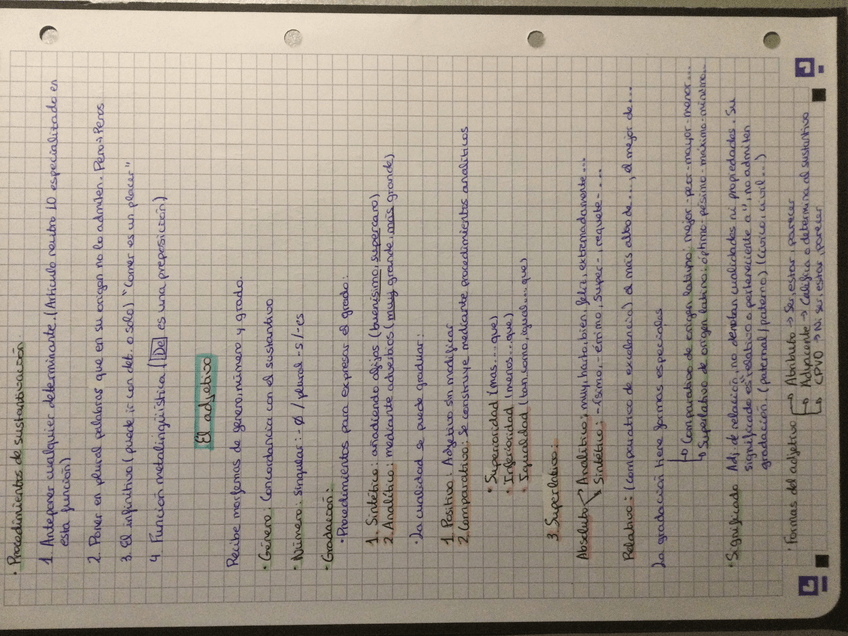 • Procedimientos de sustantivación
1. Anteponer cualquier determinante. (Artículo neutro LO especializado en
esta función)
2. Poner en plural palabras que en su origen no lo admiten. Pero → Peros
3. El infinitivo (puede ir con det. o solo) "Comer es un placer"
4. Función metalingüística (De es una preposición)
El adjetivo
Recibe morfemas de género, número y grado.
• Género: Concordancia con el sustantivo
• Número: singular: ø / plural -s / -es
• Gradación:
• Procedimientos para expresar el grado:
1. Sintético: añadiendo afijos (buenísimo, supercaro)
2. Analítico: mediante adverbios (muy grande, más grande)
• La cualidad se puede graduar:
1. Positivo: Adjetivo sin modificar
2. Comparativo: Se construye mediante procedimientos analíticos
• Superioridad (mas... que)
• Inferioridad (menos... que)
• Igualdad (tan, como, igual... que)
3. Superlativo:
Absoluto → Analítico: muy, harto, bien, feliz, extremadamente...
→ Sintético: -ísimo, -érrimo, super-, requete-...
Relativo: (comparativo de excelencia) el más alto de..., el mejor de...
La gradación tiene formas especiales
↳ Comparativo de origen latino: mejor - peor - mayor - menor...
↳ Superlativo de origen latino: óptimo - pésimo - máximo - mínimo...
• Significado: Adj. de relación, no denotan cualidades ni propiedades. Su
significado es "relativo o perteneciente a", no admiten
gradación. (paternal / paterno) (cívico, civil...)
• Formas del adjetivo → Atributo → Ser, estar, parecer
→ Adyacente → Califica o determina al sustantivo
→ CPVO → Ni ser, estar, parecer